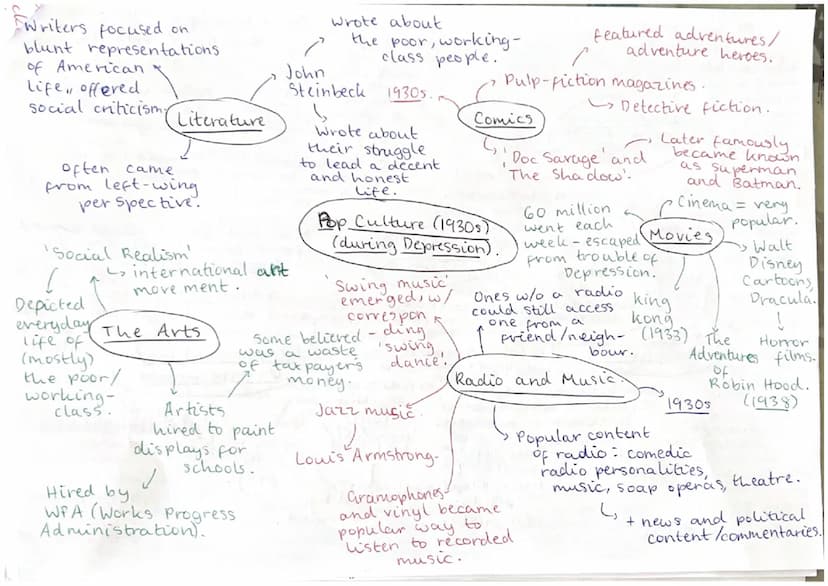 Writers focused on
blunt representations
of American
life, offered
social criticism
Literature
Often came
from left-wing
perspective.
John
Steinbeck
Wrote about
the poor, working-
class people.
Wrote about
their struggle
to lead a decent
and honest
life.
1930s
Comics
Pulp-fiction magazines.
featured adventures/
adventure heroes.
Detective fiction.
'Doc Savage' and
'The Shadow'.
Later famously
became known
as Superman
and Batman.
Pop Culture (1930s)
(during Depression).
Movies
Cinema = very
popular.
60 million
went each
week - escaped
from trouble of
Depression.
Walt
Disney
Cartoons,
Dracula.
Horror
films.
King
Kong
(1933)
The
Adventures
of
Robin Hood.
(1938)
The Arts
'Social Realism'
international art
movement.
Depicted
everyday
life of
(mostly)
the poor/
working-
class.
Artists
hired to paint
displays for
schools.
Some believed
was a waste
of taxpayers
money.
Hired by
WPA (Works Progress
Administration).
Radio and Music.
'Swing music'
emerged w/
correspon
-ding
'swing
dance'.
Ones w/o a radio
could still access
one from a
friend/neigh-
bour.
1930s
Jazz music.
Louis Armstrong.
Gramophones
and vinyl became
popular way to
listen to recorded
music.
Popular content
of radio: comedic
radio personalities,
music, soap operas, theatre.
+ news and political
content/commentaries.